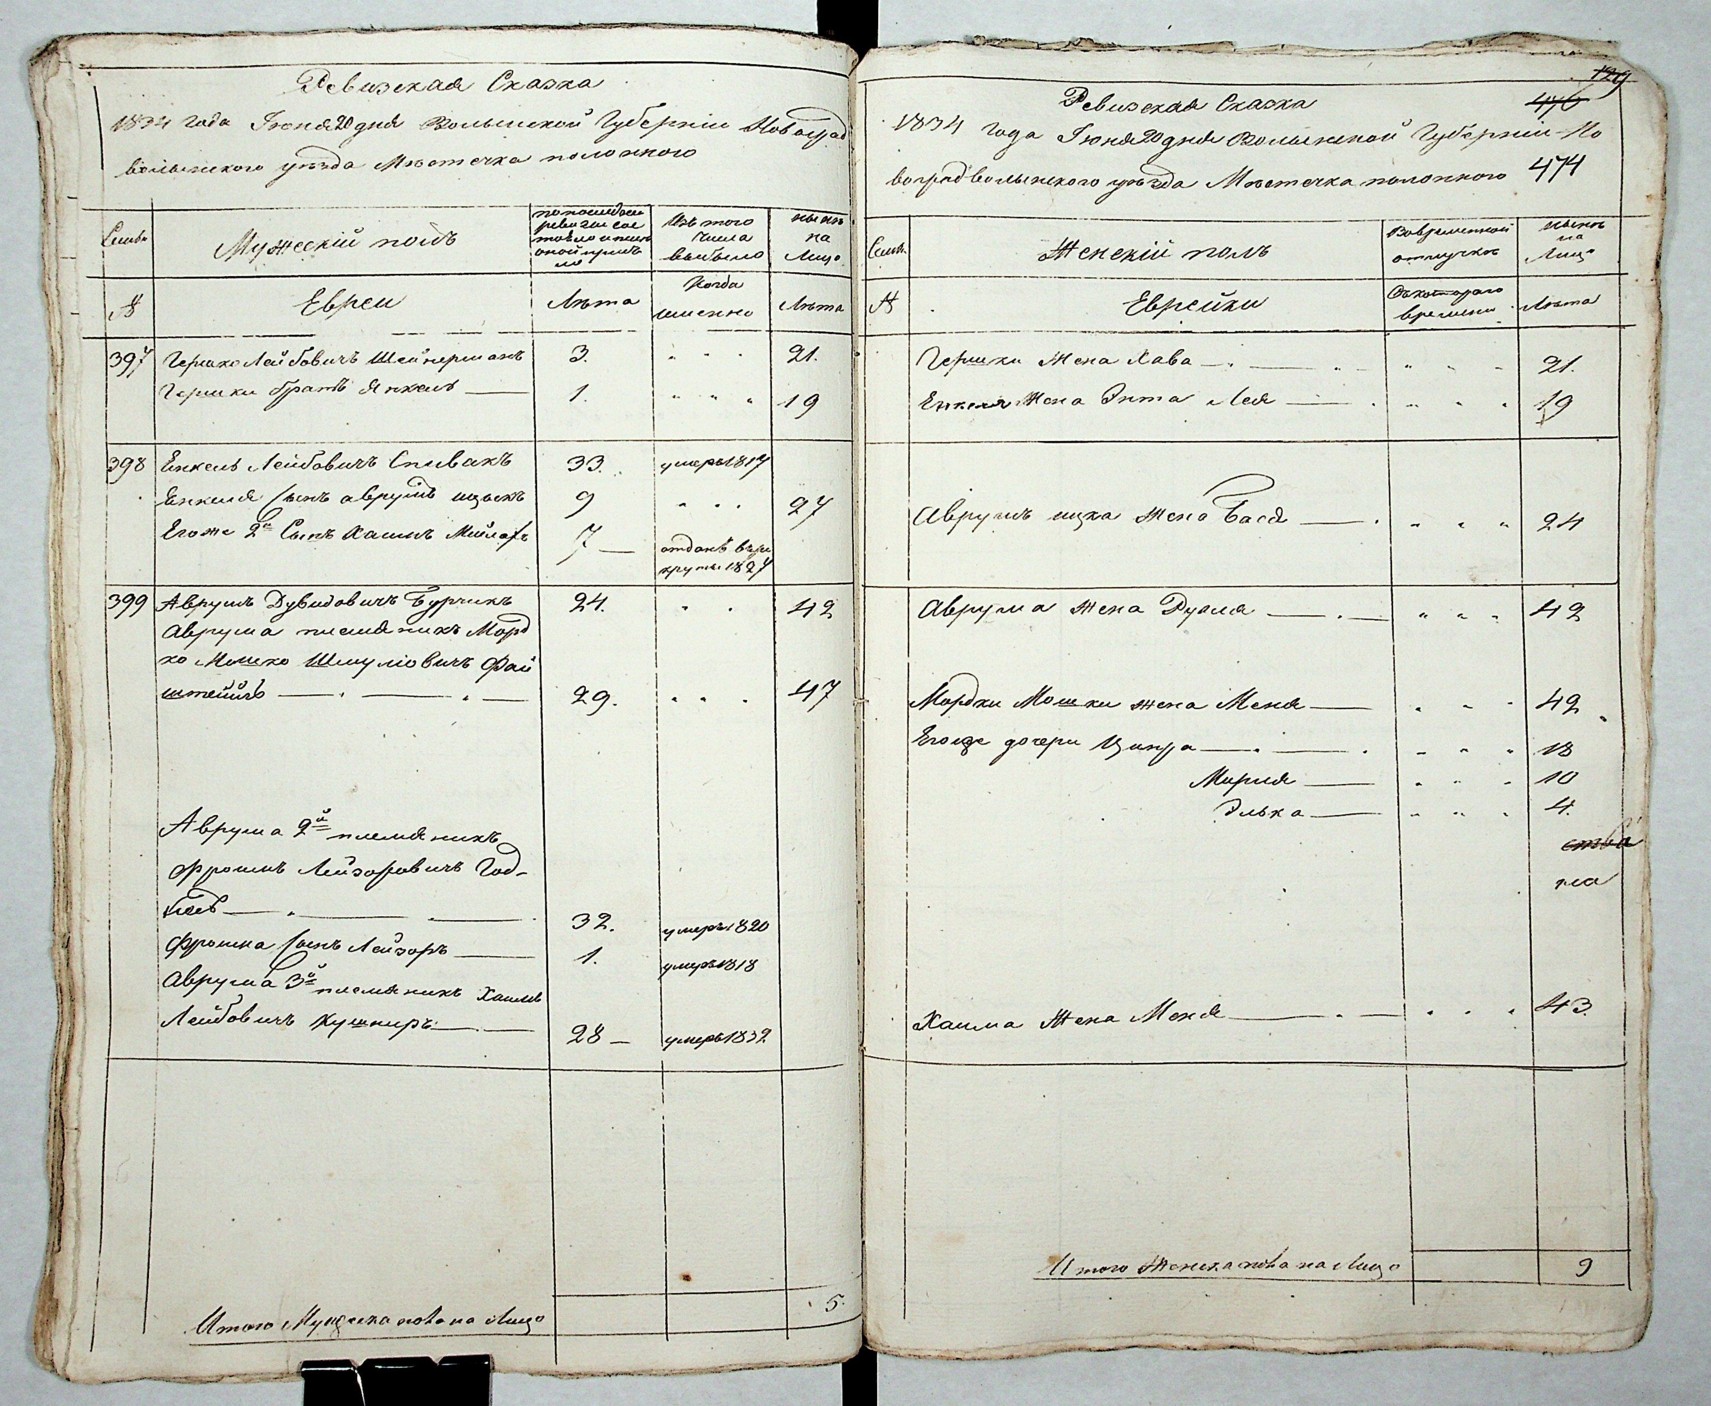 Ревизская Сказка
1834 года Іюня 20 дня Волынской Губерніи Новоград
волынского уѣзда Мѣстечка полонного
Семьи
Мужескій полъ
по последней
ревизіи сос
тояло и после
оной прибы
ло
Изъ того
числа
выбыло
ныне
на
Лицо
№
Евреи
Лѣта
Когда
именно
Лѣта
397 Гершко Лейбовичъ Шейнерманъ 3. " " " 21.
Гершки братъ Янкель — 1. " " " 19
398 Енкель Лейбовичъ Спивакъ 33. умеръ 1817
Енкеля Сынъ аврумъ ицыкъ 9 " " " 27
Егоже 2й Сынъ Хаимъ Мейлехъ 7 — отданъ въ ре
круты 1827
399 Аврумъ Дувидовичъ Бурчикъ 24. " " 42
Аврума племяникъ Морд
ко Мошко Шмуліовичъ Фай
штейнъ — 29. " " " 47
Аврума 2й племяникъ
Фроимъ Лейзоровичъ Год-
— 32. умеръ 1820
Фроима Сынъ Лейзоръ — 1. умеръ 1818
Аврума 3й племяникъ Хаимъ
Лейбовичъ Кушниръ — 28 — умеръ 1832
Итого Мужеска пола на Лицо 5.
129
476
Ревизская Сказка
1834 года Іюня 20 дня Волынской Губерніи Но
воградволынского уѣзда Мѣстечка полонного 474
Семьи
Женскій полъ
Вовременной
отлучке
ныне
на
Лицо
№
Еврейки
Съ котораго
времени
Лѣта
Гершки Жена Хава — " " " 21.
Енкеля Жена Энта Лея — " " " 19
Аврумъ ицка Жена Бася — " " " 24
Аврума Жена Рухля — " " " 42
Мордки Мошки жена Меня — " " " 42
Егоже дочери Ципра — " " " 18
Мирля — " " " 10
Элька — " " " 4.
на
Хаима Жена Меня — " " " 43.
Итого Женска пола на Лицо 9